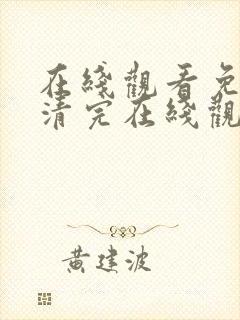 在綫觀看免
清完在綫觀
黃建波